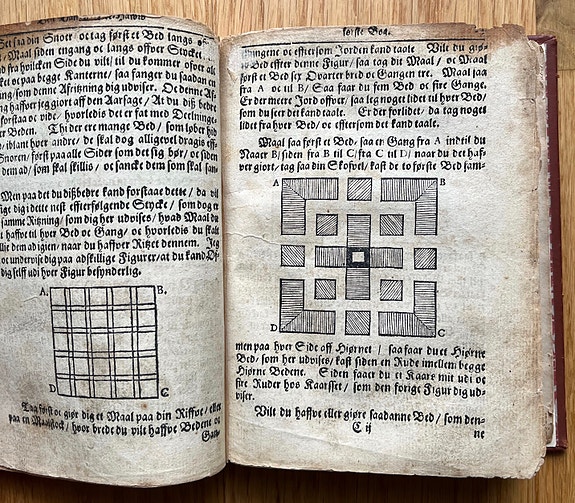 Set saa din Snoer oc tag først et Bed langs
Maal siden engang oc langs offver Stycket
fra hvilcken Side du vilt/ til du kommer ofver alt
oc paa begge Kanterne/ saa fanger du saadan en
som denne Afritzning dig udviser. Oc denne Af-
haffver jeg giort aff den Aarsage/ At du diß bedre
forstaa oc vide/ hvorledis det er fat med Deelninge
Beden. Thi der ere mange Bed/ som løber hid
iblant hver andre/ de skal dog alligevel dragis eff-
Snoren/ først paa alle Sider som det sig bør/ oc siden
dem ad/ som skal skillis/ oc sanckt dem som skal san-
Men paa det du dißbedre kand forstaae dette/ da vil
dig i dette nest efterfølgende Stycke/ som dog er
samme Ritzning/ som dig her udvises/ hvad Maal du
haffve til hver Bed oc Gang/ oc hvorledis du skalt
dem ad igien/ naar du haffver Ritzet dennem. Jeg
oc underviise dig paa adskillige Figurer/ at du kand
dig self udi hver Figur besynderlig.
A. B.
D C
Tag først oc giør dig et Maal paa din Riffve/ eller
paa en Maalstock/ hvor brede du vilt haffve Bedene oc
Gang-
første Bog.
ningene oc effter som Jorden kand taale. Vilt du giø-
re Bed effter denne Figur/ saa tag dit Maal/ oc Maal
først et Bed sex Quarter bred oc Gangen tre. Maal saa
fra A oc til B/ Saa faar du fem Bed oc fire Gange.
Er der meere Jord offver/ saa leg noget lidet til hver Bed/
som du seer det kand taale. Er der forlidet/ da tag noget
lidet fra hver Bed/ oc effter som det kand taale.
Maal saa først et Bed/ saa en Gang fra A indtil du
Naaer B/ siden fra B til C/ fra C til D/ naar du det haf-
ver giort/ tag saa din Skofvel/ kast de to første Bed sam-
A B
D C
men paa hver Side off Hiørnet/ saa faar du et Hiørne
Bed/ som her udvises/ kast siden en Rude imellem begge
Hiørne Bedene. Siden faaer du et Kaars mit udi oc
fire Ruder hos Kaarset/ som den forige Figur dig ud-
viser.
Vilt du haffve eller giøre saadanne Bed/ som den-
C ij
ne